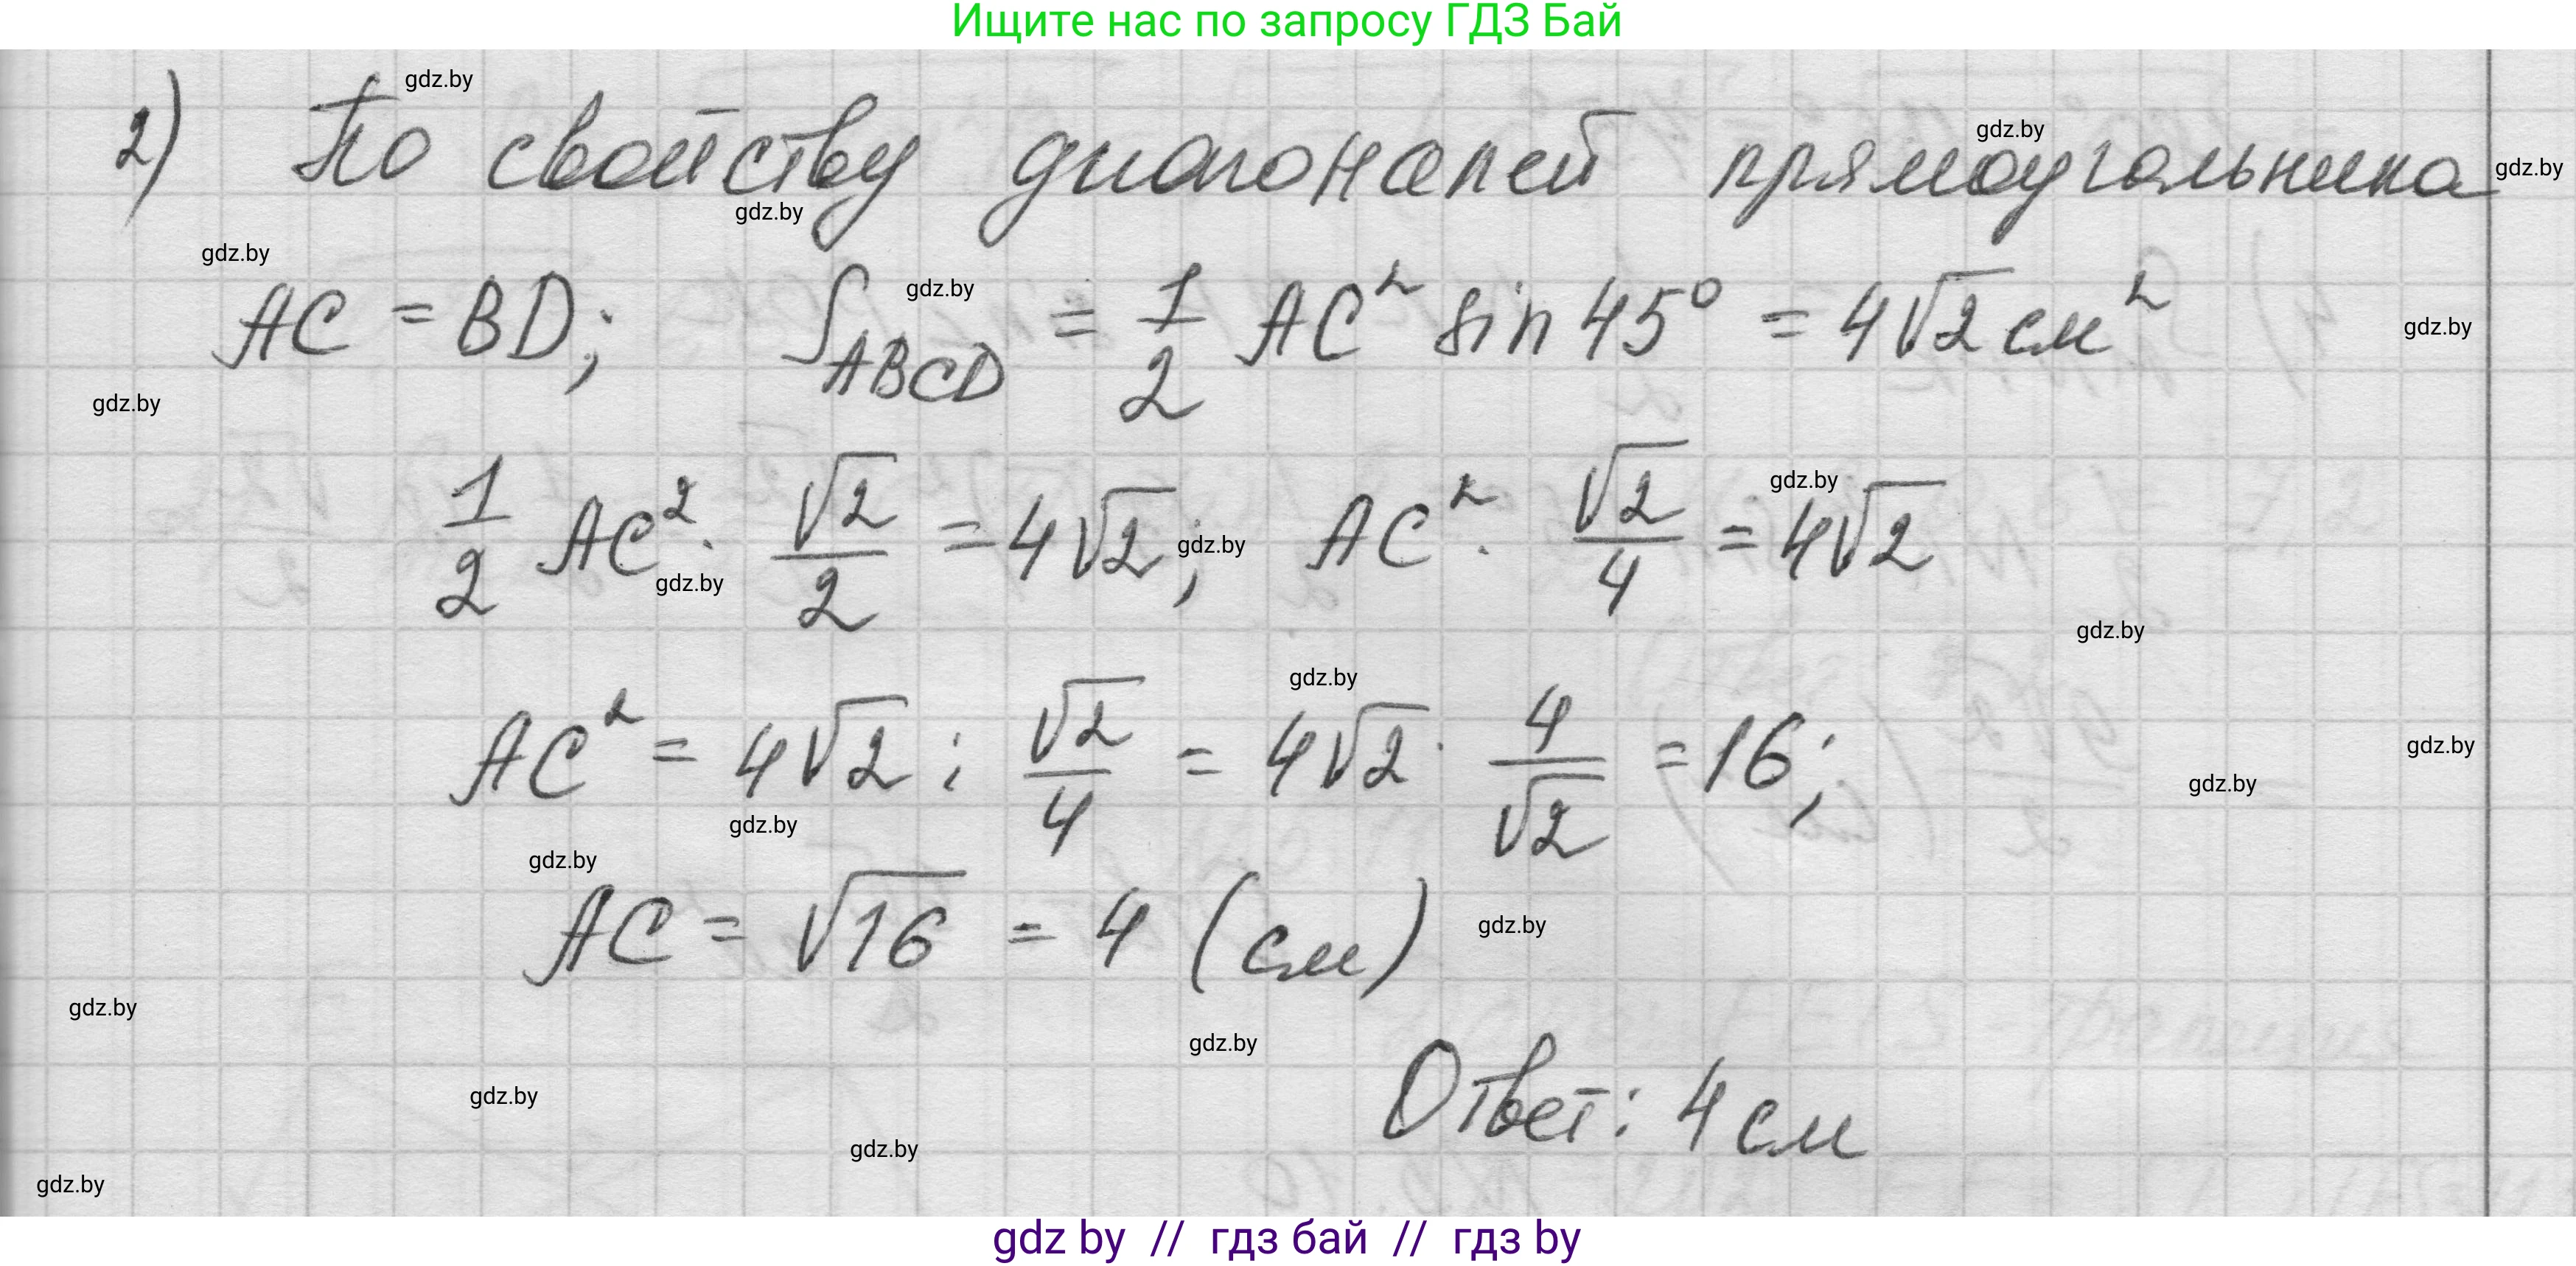 Ищите нас по запросу ГДЗ Бай
gdz.by
2) По свойству диагоналей прямоугольника
gdz.by
gdz.by
gdz.by
gdz.by
gdz.by
AC = BD; S_ABCD = 1/2 AC² sin 45° = 4√2 см²
gdz.by
gdz.by
gdz.by
1/2 AC² · √2/2 = 4√2; AC² · √2/4 = 4√2
gdz.by
gdz.by
gdz.by
gdz.by
AC² = 4√2 : √2/4 = 4√2 · 4/√2 = 16;
gdz.by
gdz.by
gdz.by
gdz.by
AC = √16 = 4 (см)
gdz.by
gdz.by
gdz.by
Ответ: 4 см
gdz.by
gdz.by
gdz.by
gdz by // гдз бай // гдз by